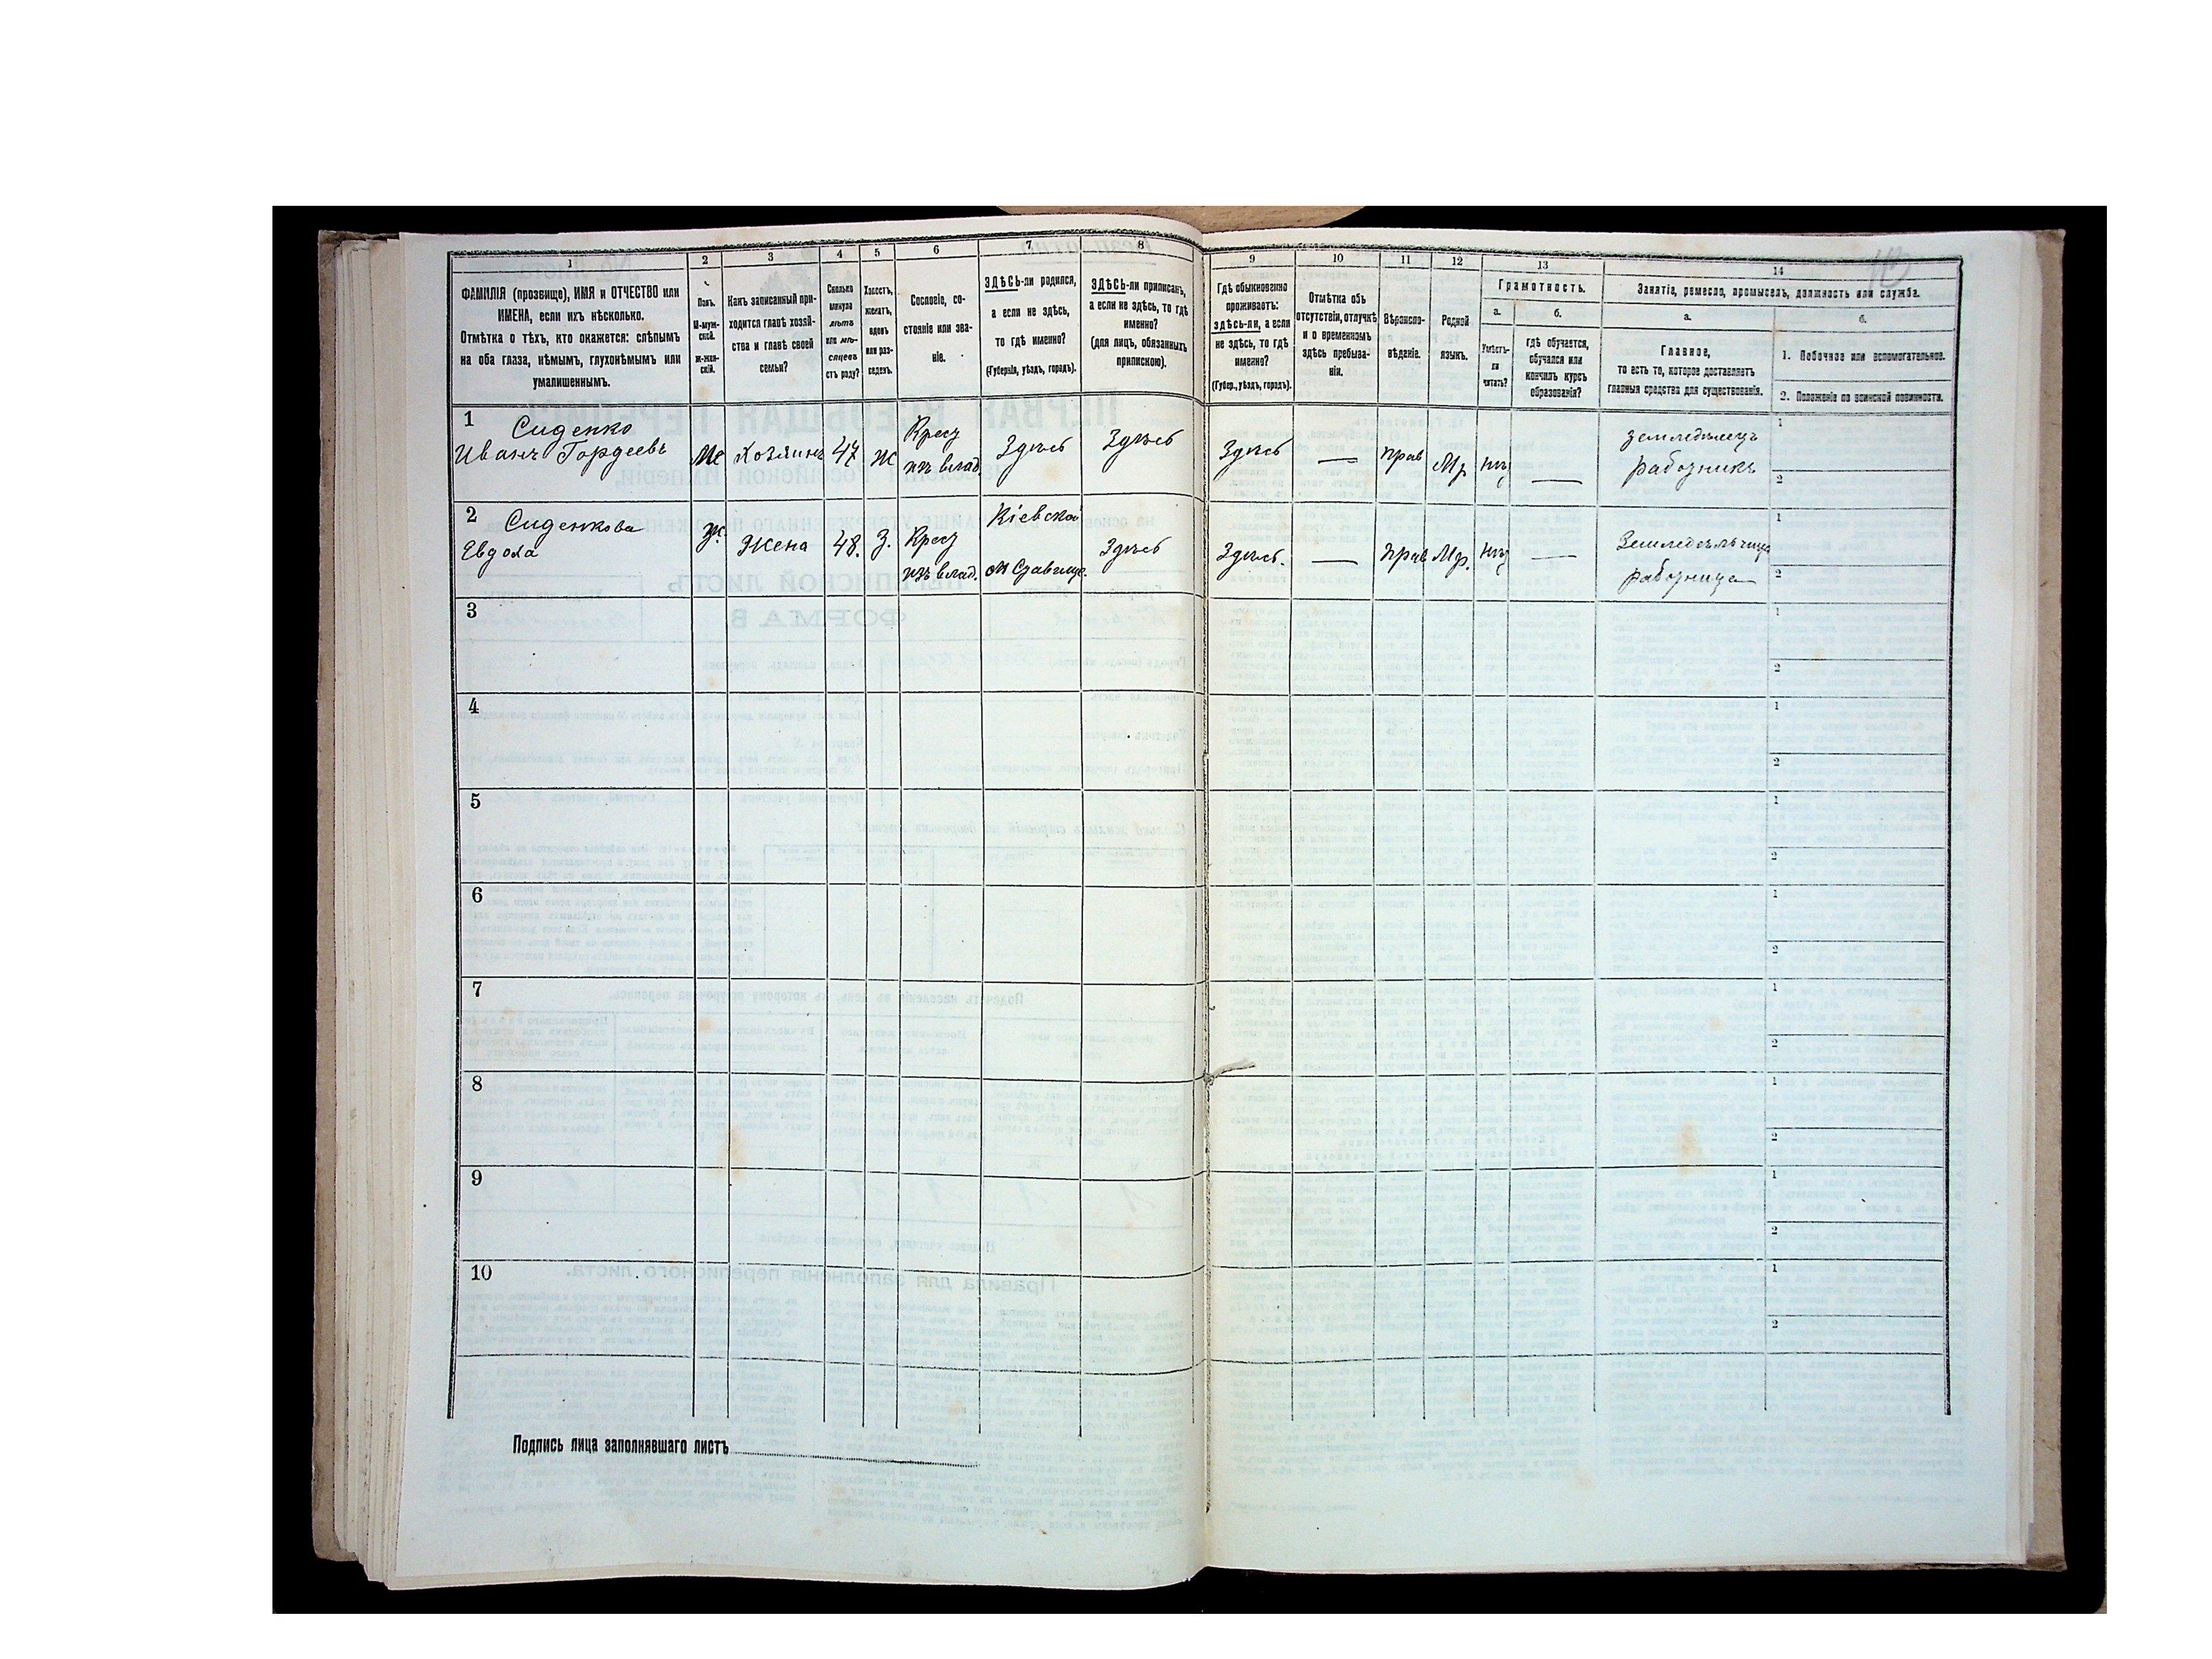 1
2
3
4
5
6
7
8
ФАМИЛІЯ (прозвище), ИМЯ и ОТЧЕСТВО или
ИМЕНА, если ихъ нѣсколько.
Отмѣтка о тѣхъ, кто окажется: слѣпымъ
на оба глаза, нѣмымъ, глухонѣмымъ или
умалишеннымъ.
Полъ.
М-муж-
ской.
Ж-жен-
скій.
Какъ записанный при-
ходится главѣ хозяй-
ства и главѣ своей
семьи?
Сколько
минуло
лѣтъ
или мѣ-
сяцевъ
отъ роду?
Холостъ,
женатъ,
вдовъ
или раз-
веденъ.
Сословіе, со-
стояніе или зва-
ніе.
ЗДѢСЬ-ли родился,
а если не здѣсь,
то гдѣ именно?
(Губернія, уѣздъ, городъ).
ЗДѢСЬ-ли приписанъ,
а если не здѣсь, то гдѣ
именно?
(для лицъ, обязанныхъ
припискою).
9
10
11
12
13
14
Гдѣ обыкновенно
проживаетъ:
здѣсь-ли, а если
не здѣсь, то гдѣ
именно?
(Губер., уѣздъ, городъ).
Отмѣтка объ
отсутствіи, отлучкѣ
и о временномъ
здѣсь пребыва-
ніи.
Вѣроиспо-
вѣданіе.
Родной
языкъ.
Грамотность.
а.
б.
Умѣетъ-
ли
читать?
гдѣ обучается,
обучался или
кончилъ курсъ
образованія?
Занятіе, ремесло, промыселъ, должность или служба.
а.
б.
Главное,
то есть то, которое доставляетъ
главныя средства для существованія.
1. Побочное или вспомогательное.
2. Положеніе по воинской повинности.
1 Сиденко
Иванъ Гордеевъ
М
Хозяинъ
47
Ж
Крест
изъ влад
Здѣсь
Здѣсь
Здѣсь
—
прав
Мр
нѣт
—
Земледѣлецъ
работникъ
1
2
2 Сиденкова
Евдоха
Ж.
Жена
48.
З.
Крест
изъ влад.
Кіевской
м Ставище.
Здѣсь
Здѣсь.
—
прав
Мр.
нѣт
—
Земледѣльчица
работница
1
2
3
1
2
4
1
2
5
1
2
6
1
2
7
1
2
8
1
2
9
1
2
10
1
2
Подпись лица заполнявшаго листъ